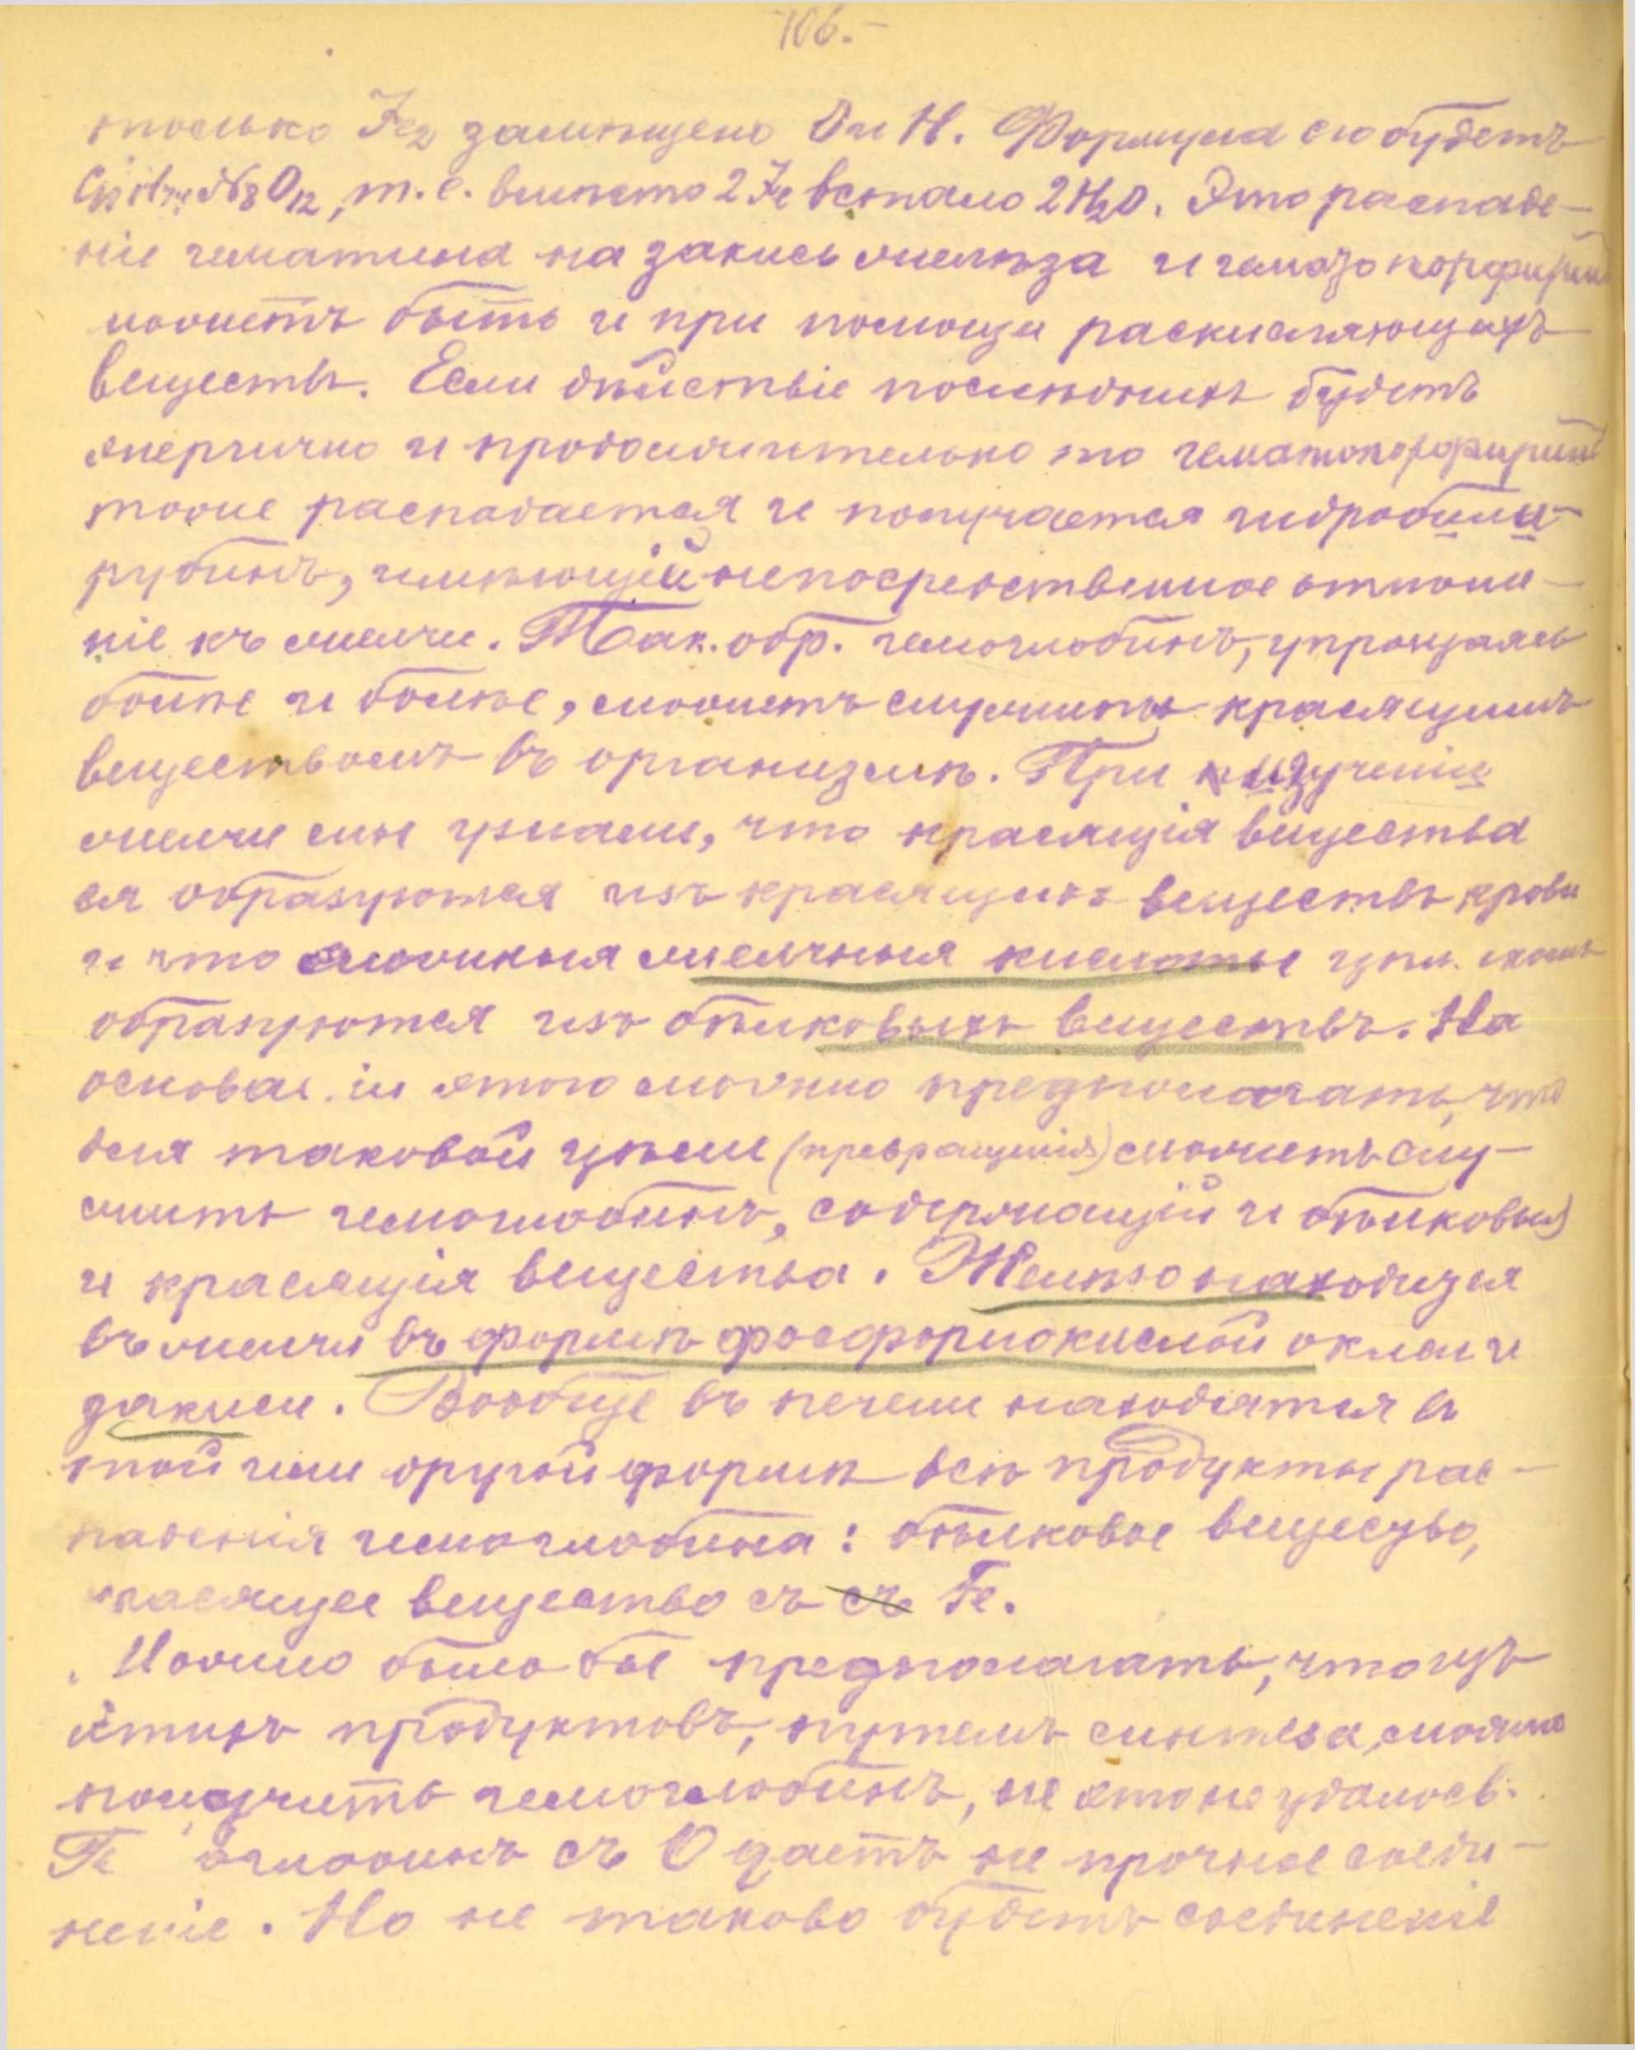 -106.-
только Fe2 замѣщено O и H. Формула его будетъ
N8O12, т. е. вмѣсто 2 Fe встало 2H2O. Это распаде-
ніе гематина на закись желѣза и гематопорфиринъ
можетъ быть и при помощи раскисляющихъ
веществъ. Если дѣйствіе послѣднихъ будетъ
энергично и продолжительно то гематопорфиринъ
тоже распадается и получается гидробили-
рубинъ, имѣющій непосредственное отноше-
ніе къ желчи. Так. обр. гемоглобинъ, упрощаясь
болѣе и болѣе, можетъ служить красящимъ
веществомъ въ организмѣ. При изученіи
желчи мы узнали, что красящія вещества
ея образуются изъ красящихъ веществъ крови
и что сложныя желчныя кислоты
образуются изъ бѣлковыхъ веществъ. На
основаніи этого можно предполагать, что
для таковой цѣли (превращенія) можетъ слу-
жить гемоглобинъ, содержащій и бѣлковыя
и красящія вещества. Желѣзо находится
въ желчи въ формѣ фосфорнокислой окиси и
закиси. Вообще въ печени находятся въ
той или другой формѣ всѣ продукты рас-
паденія гемоглобина: бѣлковое вещество,
красящее вещество съ съ Fe.
Можно было бы предполагать, что изъ
этихъ продуктовъ, путемъ синтеза, можно
получить гемоглобинъ, но это не удалось.
Гемоглобинъ съ O даетъ не прочное соеди-
неніе. Но не таково будетъ соединеніе